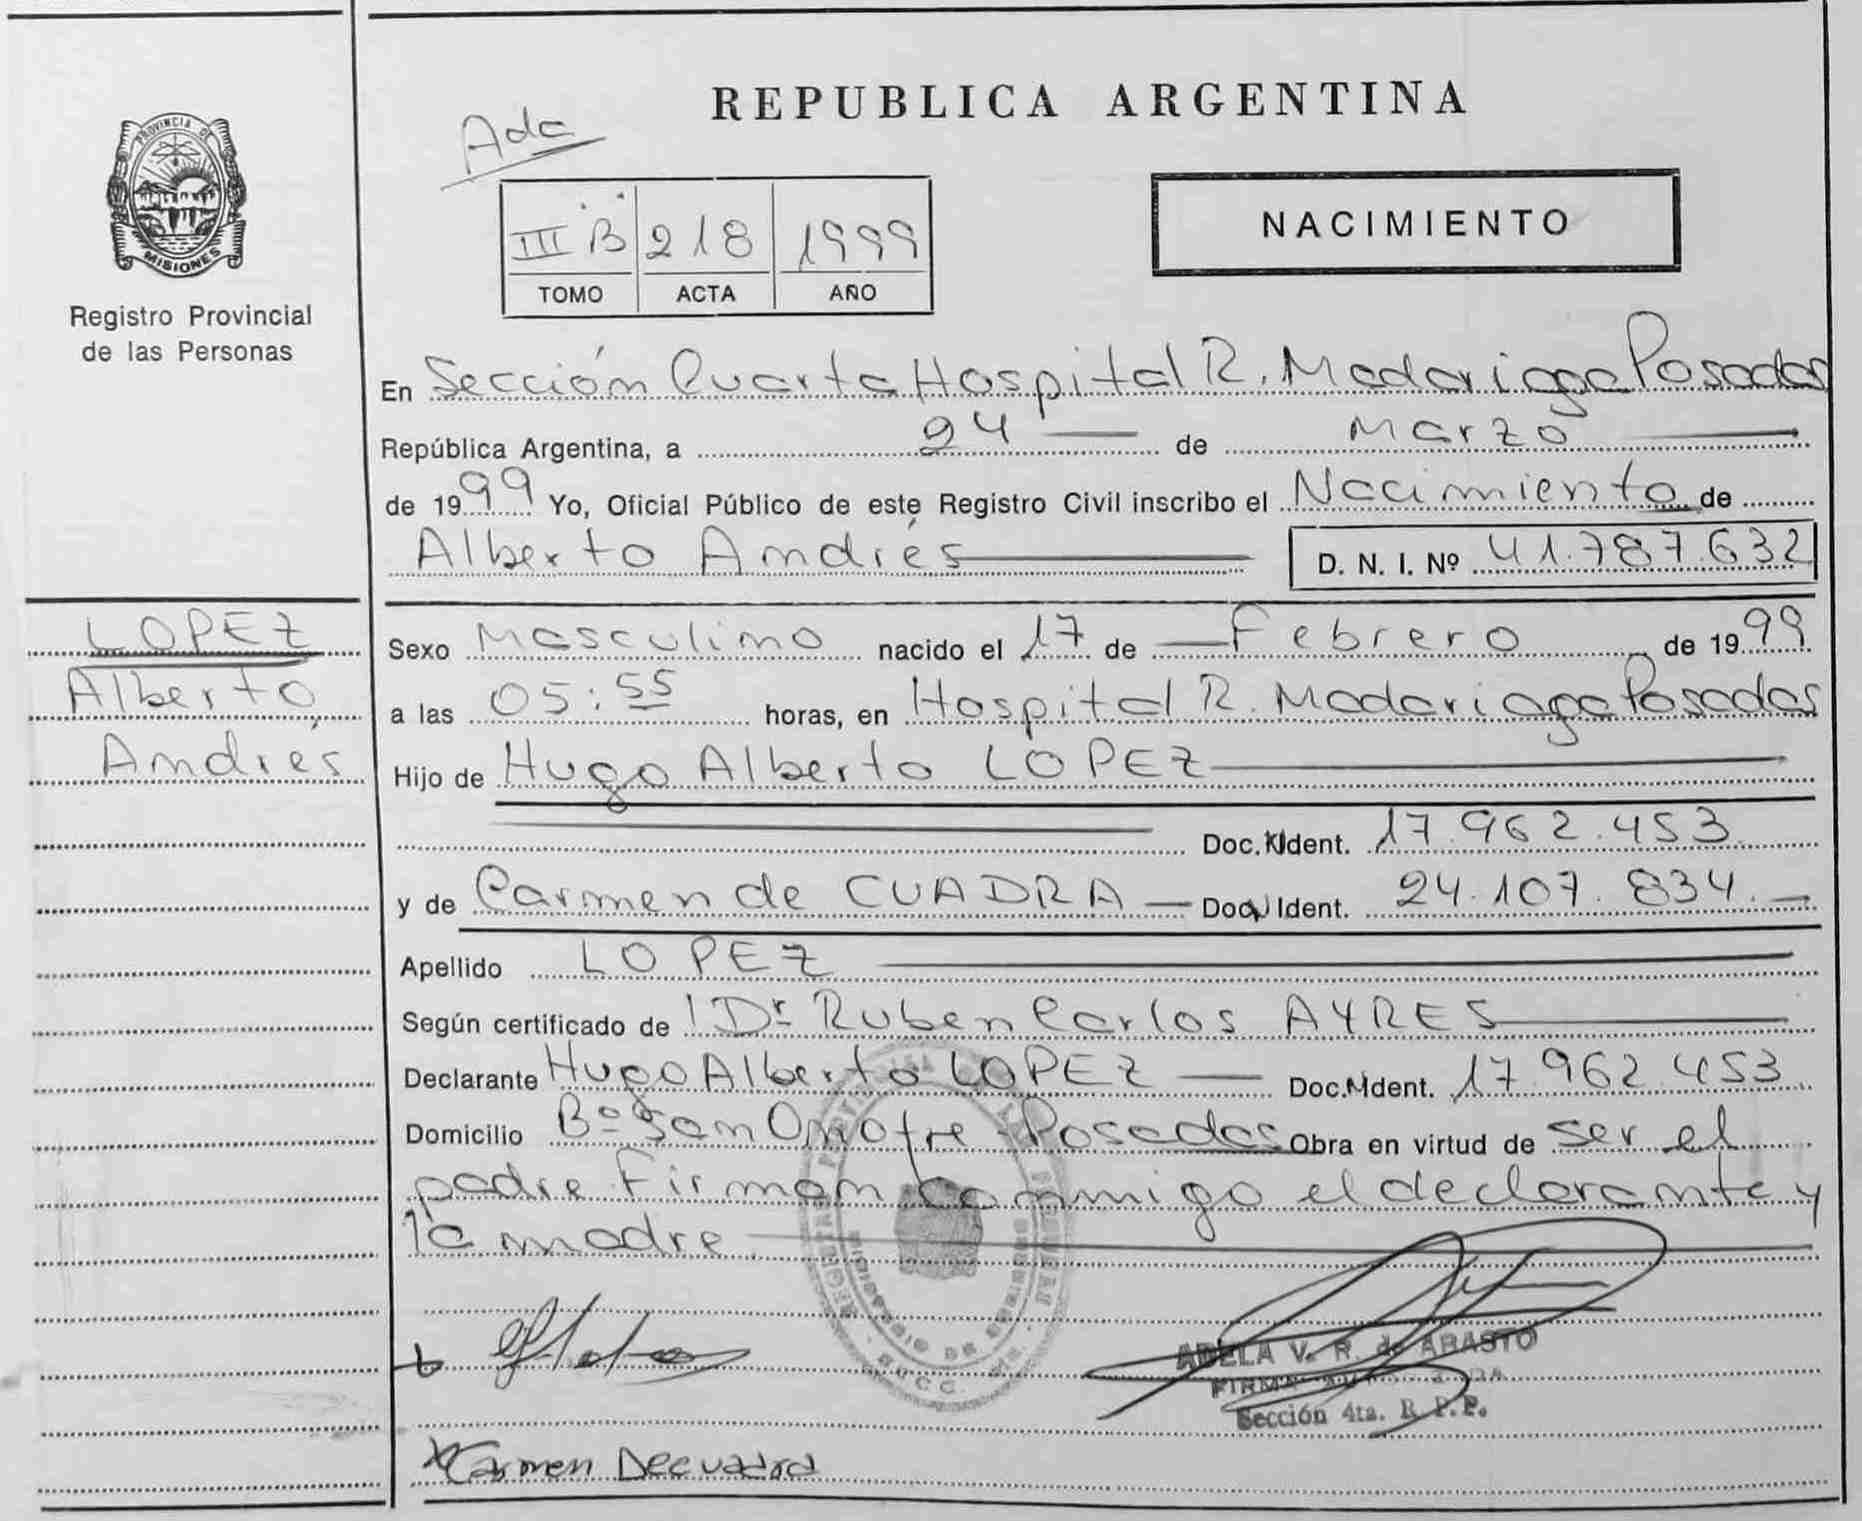 PROVINCIA DE
MISIONES
Registro Provincial
de las Personas
LOPEZ
Alberto
Andrés
REPUBLICA ARGENTINA
NACIMIENTO
III B 218 1999
TOMO ACTA AÑO
En Sección Cuarta Hospital R. Madariaga Posadas
República Argentina, a 24 de Marzo
de 1999 Yo, Oficial Público de este Registro Civil inscribo el Nacimiento de
Alberto Andrés D. N. I. Nº 41.787.632
Sexo Masculino nacido el 17 de Febrero de 1999
a las 05:55 horas, en Hospital R. Madariaga Posadas
Hijo de Hugo Alberto LOPEZ
Doc. Ident. 17.962.453
y de Carmen de CUADRA Doc. Ident. 24.107.834.
Apellido LOPEZ
Según certificado de Dr Ruben Carlos AYRES
Declarante Hugo Alberto LOPEZ Doc. Ident. 17.962.453
Domicilio Bº San Onofre - Posadas Obra en virtud de ser el
padre Firman conmigo el declarante y
la madre
ADELA V. R. de ABASTO
Sección 4ta. R. P. P.
Carmen Decuadra